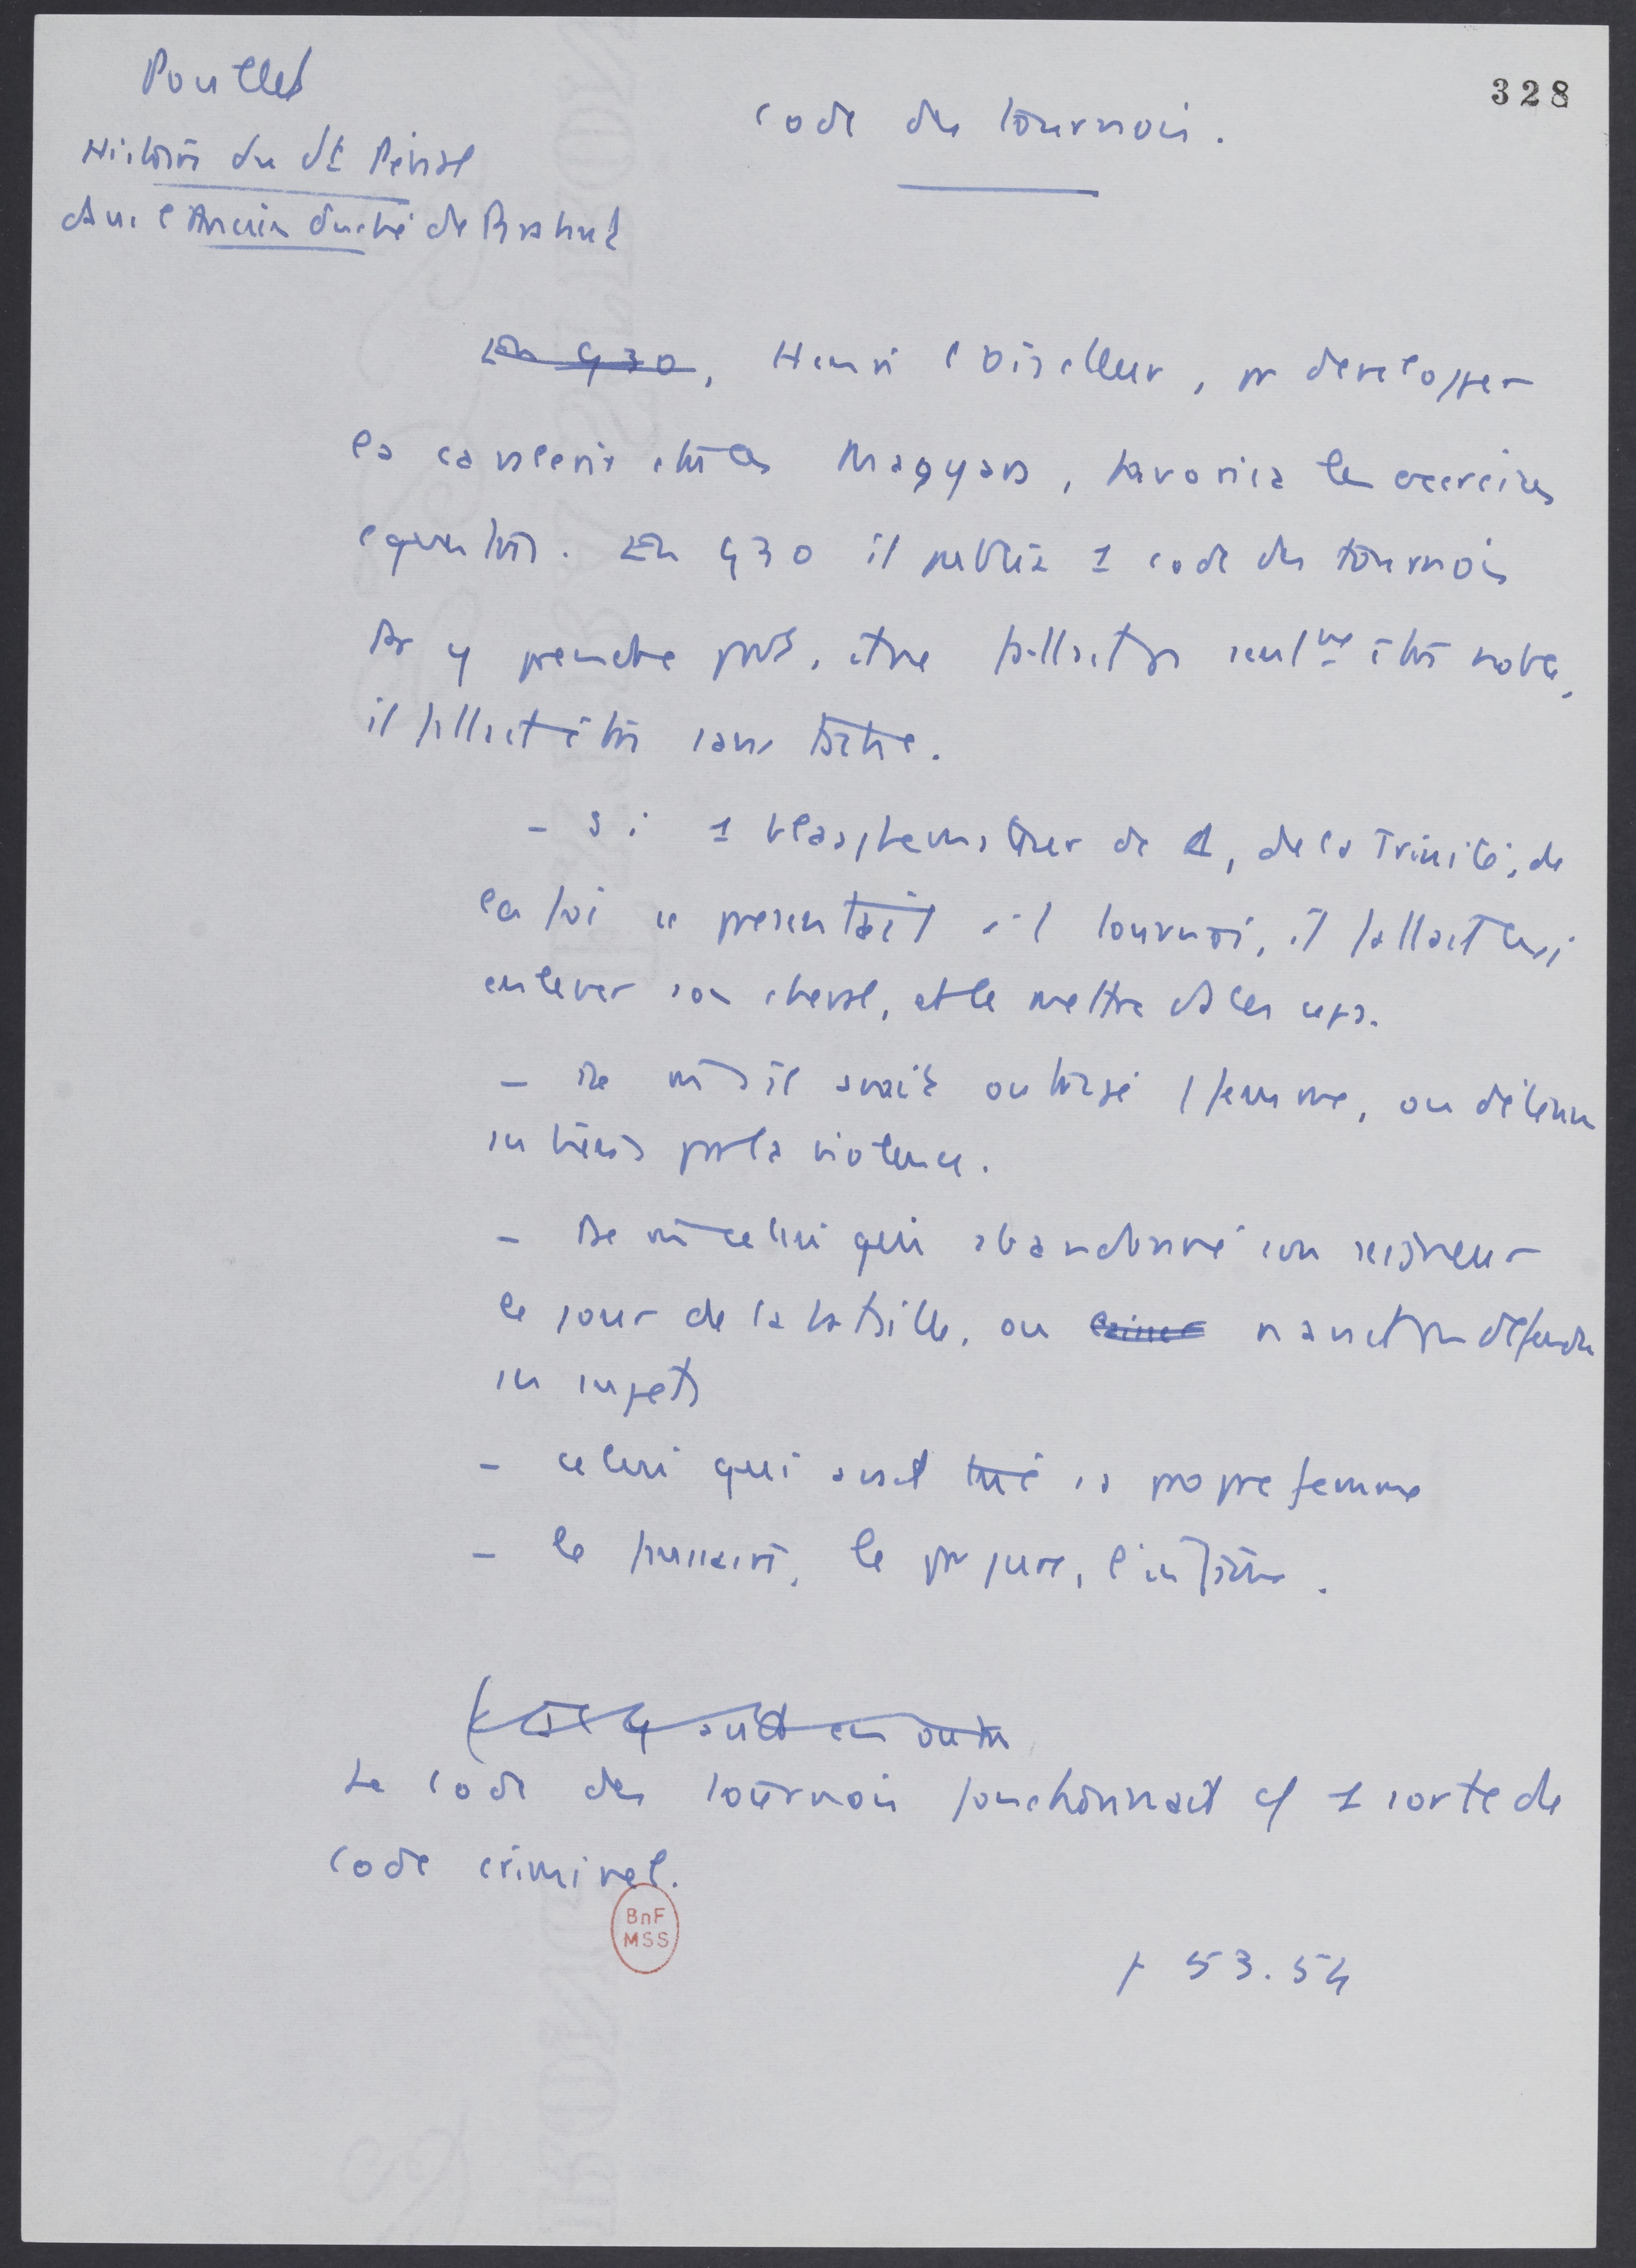 Poullet
328
Code des tournois.
Histoire du dt Pénal
dans l'Ancien duché de Brabant
En 930, Henri l'Oiseleur, pr developper
la cavalerie chez les Magyars, favorisa les exercices
equestres. En 930 il publia 1 code des tournois
Pr y prendre part, fallait seulmt être noble,
il fallait être sans tache.
- Si 1 blasphemateur de de la Trinité, de
la foi se presentait au tournoi, il fallait lui
enlever son cheval, et le mettre ds les ceps.
- De m s'il avait outragé 1 femme, ou détenu
un biens par la violence.
- De m celui qui abandonné son seigneur
le jour de la bataille, ou laisser n'avait pas défendu
ses sujets
- celui qui avait tué sa propre femme
- le faussaire, le parjure, l'infâme.
(Il y avait en outre
Le code des tournois fonctionnait cf 1 sorte de
code criminel.
BnF
MSS
p 53.54